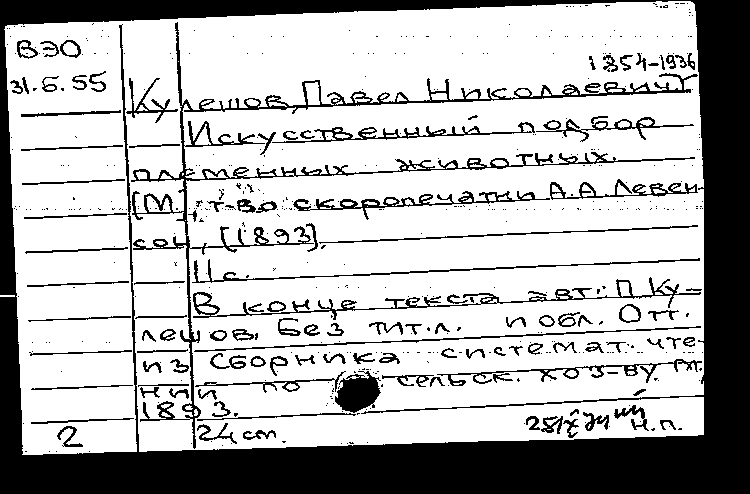 ВЭО
31.5.55
1854-1936
Кулешов, Павел Николаевич
Искусственный подбор
племенных животных.
[М], т-во скоропечатни А.А Левен-
сон, [1893].
11 с.
В конце текста авт.: П. Ку-
лешов. Без тит.л. и обл. Отт.
из Сборника системат. чте-
ний по сельск. хоз-ву.
1893.
2
24 cm.
Н.П.